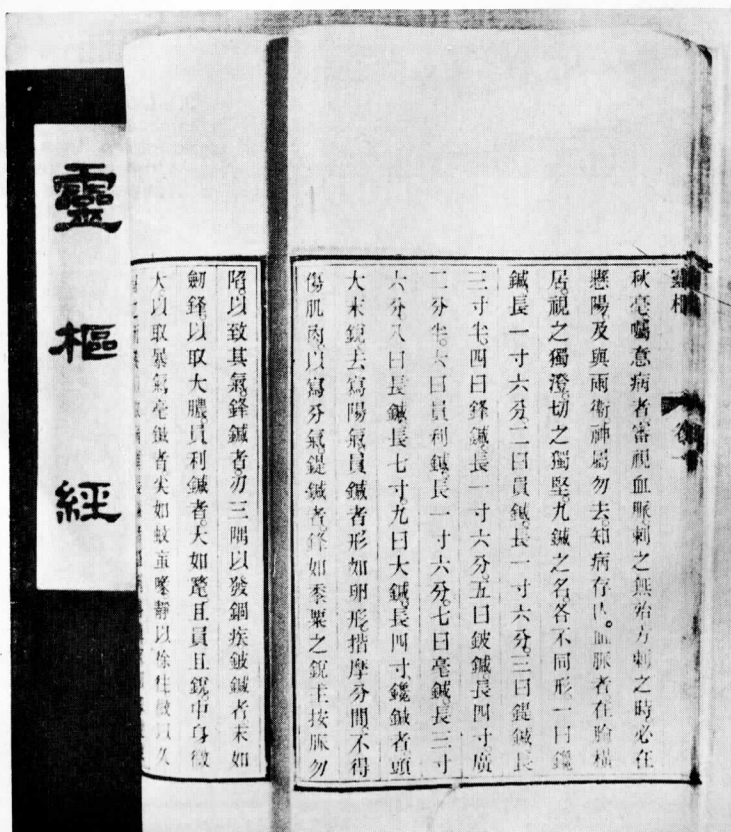 靈樞經
靈樞 卷一
秋毫囑意病者審視血脈刺之無殆方刺之時必在
懸陽及與兩衛神屬勿去知病存亡。血脈者在腧橫
居視之獨澄。切之獨堅。九鍼之名各不同形。一曰鑱
鍼長一寸六分。二曰員鍼。長一寸六分。三曰鍉鍼長
三寸半。四曰鋒鍼。長一寸六分。五曰鈹鍼長四寸廣
二分半。六曰員利鍼長一寸六分。七曰毫鍼。長三寸
六分八曰長鍼長七寸九曰大鍼。長四寸。鑱鍼者頭
大末銳去寫陽氣員鍼者形如卵形。揩摩分間。不得
傷肌肉。以寫分氣鍉鍼者。鋒如黍粟之銳主按脈勿
陷。以致其氣。鋒鍼者刃三隅以發錮疾鈹鍼者末如
劒鋒。以取大膿員利鍼者。大如氂且員且銳。中身微
大以取暴氣毫鍼者尖如蚊虻喙靜以徐往微以久